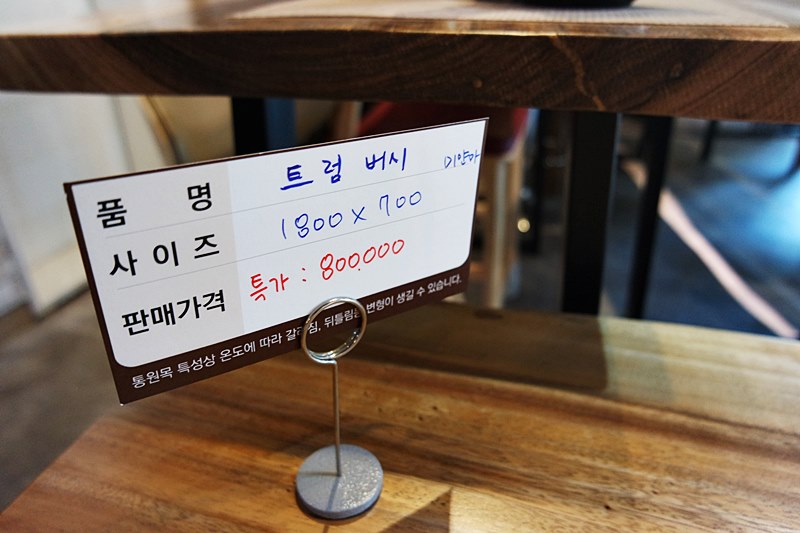 품 명 트럼 버시 미얀마
사 이 즈 1800 x 700
판매가격 특가 : 800.000
통원목 특성상 온도에 따라 갈라짐, 뒤틀림등 변형이 생길 수 있습니다.